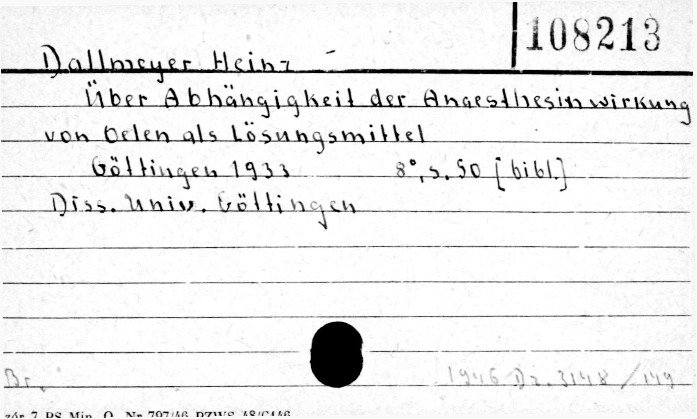 108213
Dallmeyer Heinz
Über Abhängigkeit der Anaesthesinwirkung
von Oelen als Lösungsmittel
Göttingen 1933 8°, s. 50 [bibl.]
Diss. Univ. Göttingen
Br. 1946 Dz. 3148/149
zór 7 PS Min. O. Nr 797/46 PZWS